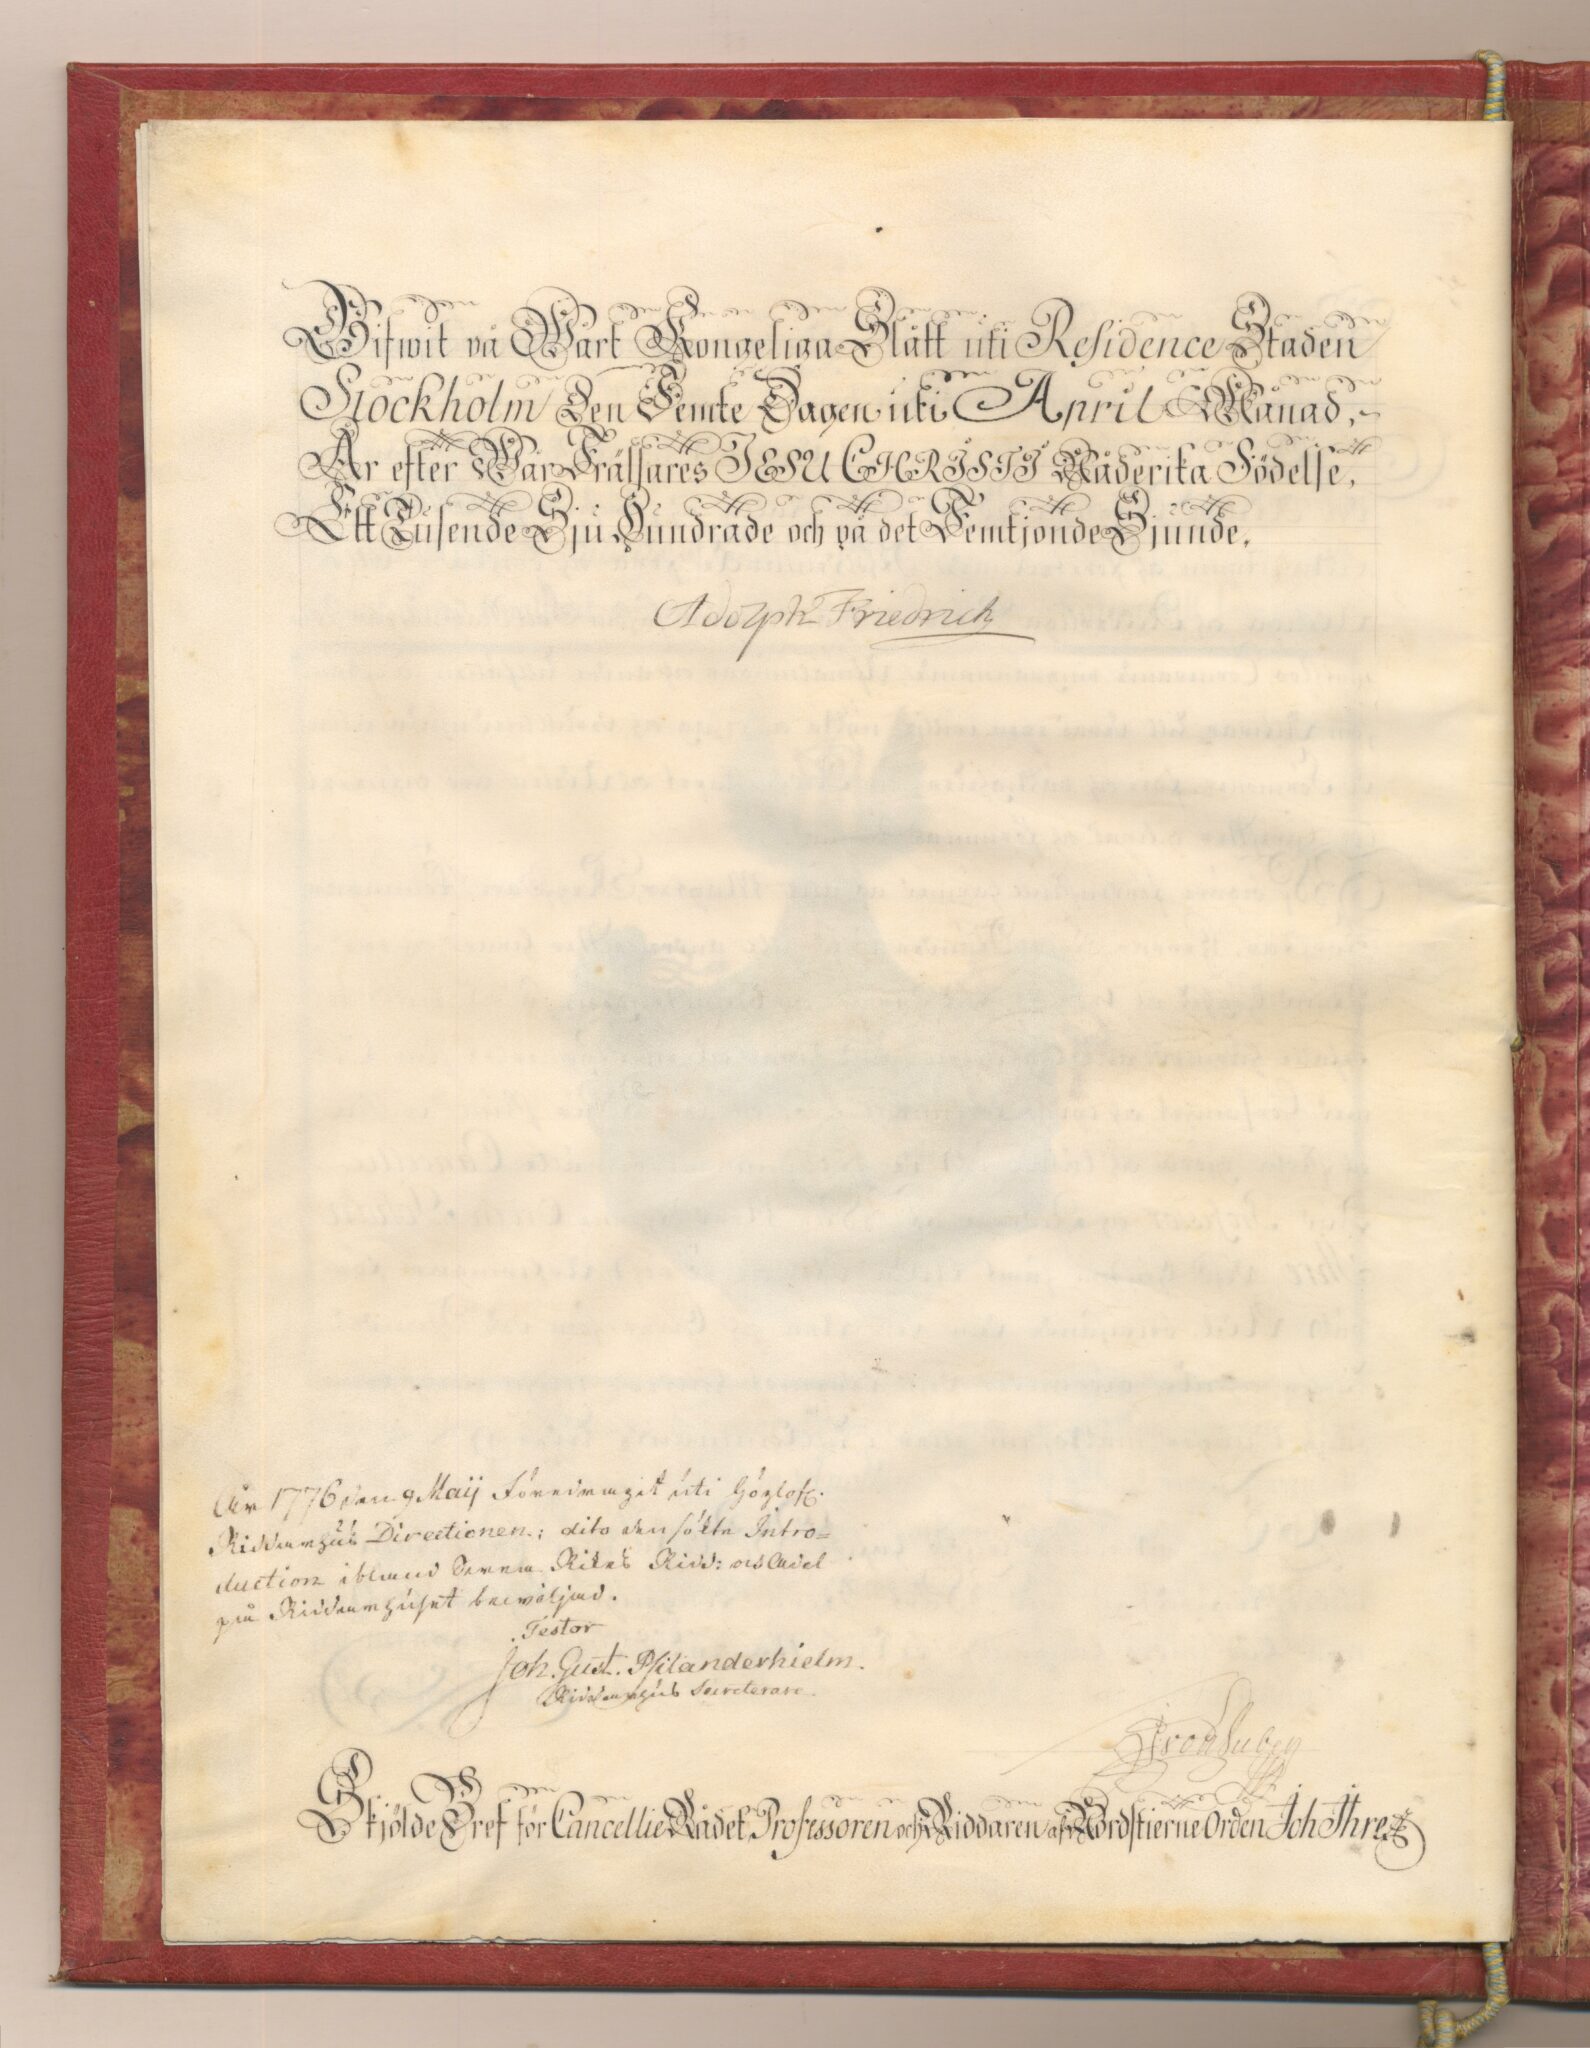 Gifwit på Wårt Kongeliga Slått uti Residence Staden
Stockholm Den Femte Dagen uti April Månad,
År efter Wår Frälsares JESU CHRISTI Nåderika Födelse,
Ett Tusende Sju Hundrade och på det Femtjonde Sjunde.
Adolph Friedrich
År 1776 den 9 Maij Föredraget uti Höglofl.
Riddarhus Directionen; dito den sökte Intro=
duction ibland Rikets Ridd: och Adel
på Riddarhuset bewiljad.
Testor
Joh. Gust. Psilanderhielm.
Riddarhus Secreterare.
Skjölde Bref för Cancellie Rådet, Professoren och Riddaren af Nordstierne Orden Joh Ihre